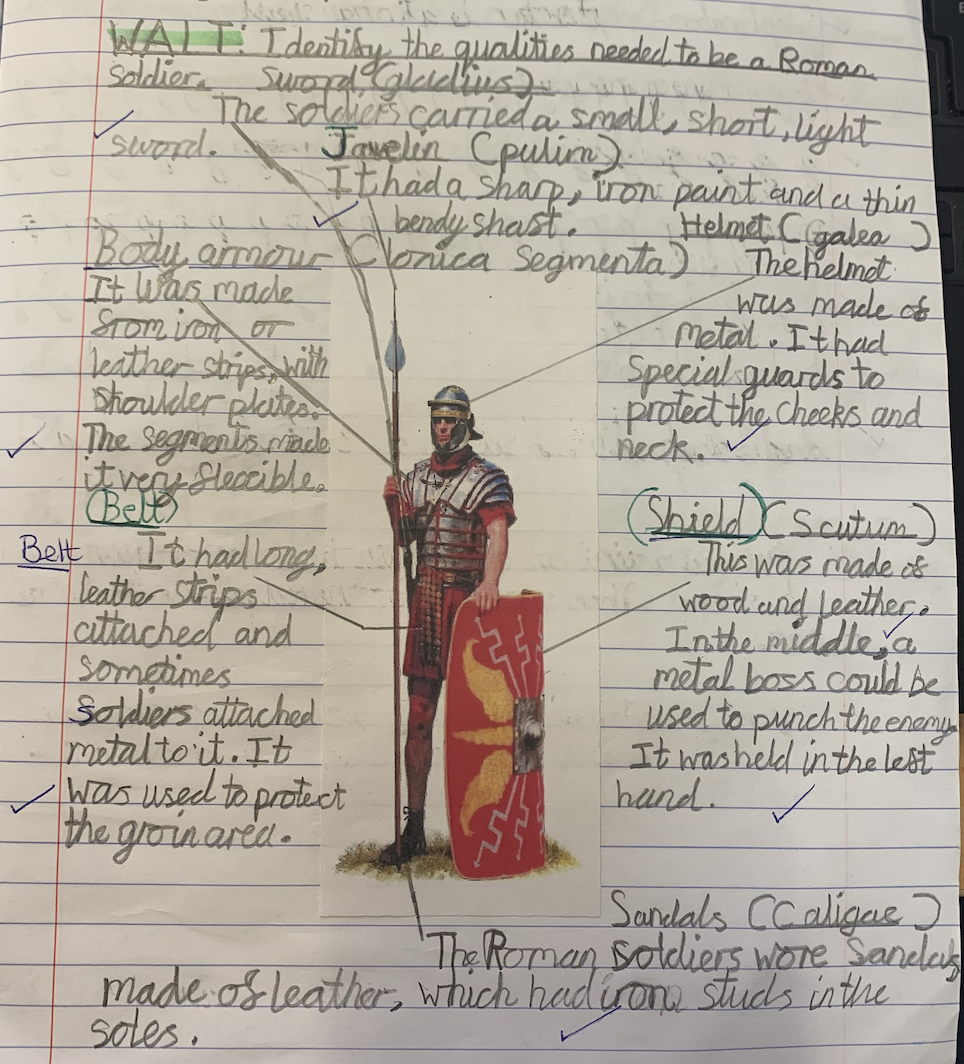 WALT: Identify the qualities needed to be a Roman
Soldier. Sword (gladius)
The soldiers carried a small, short, light
sword.
Javelin (pulim)
It had a sharp, iron paint and a thin
bendy shast.
Body armour (lorica Segmenta)
It was made
from iron or
leather strips, with
shoulder plates.
The segments made
it very fleccible.
Helmet (galea)
The helmet
was made of
metal. It had
special guards to
protect the cheeks and
neck.
(Belt)
Belt
It had long,
leather strips
attached and
sometimes
soldiers attached
metal to it. It
was used to protect
the groin area.
(Shield) (Scutum)
This was made of
wood and leather.
In the middle, a
metal boss could be
used to punch the enemy
It was held in the left
hand.
Sandals (Caligae)
The Roman soldiers wore Sandals
made of leather, which had iron studs in the
soles.